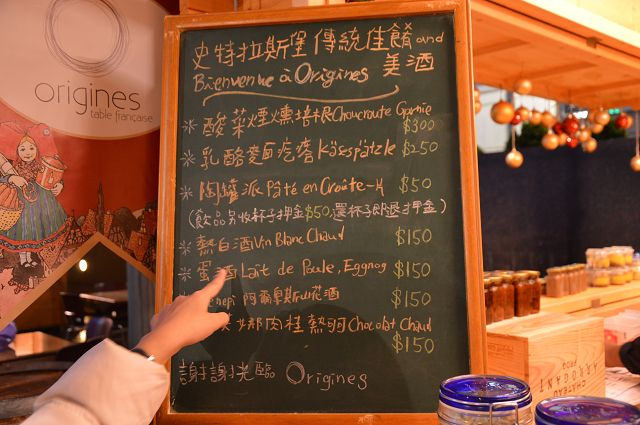 origines
table française
史特拉斯堡 傳統佳餚 and 美酒
Bienvenue à Origines
＊酸菜煙燻培根Choucroute Garnie $300
＊乳酪麵疙瘩 Käsespätzle $250
＊陶罐派 Pâté en Croûte $50
(飲品另收杯子押金$50,還杯子即退押金)
＊熱白酒Vin Blanc Chaud $150
＊蛋酒Lait de Poule, Eggnog $150
enepi 阿爾卑斯山花酒 $150
娜肉桂熱可可Chocolat Chaud $150
謝謝光臨 Origines
CHATEAU
ARROGANT
FROG